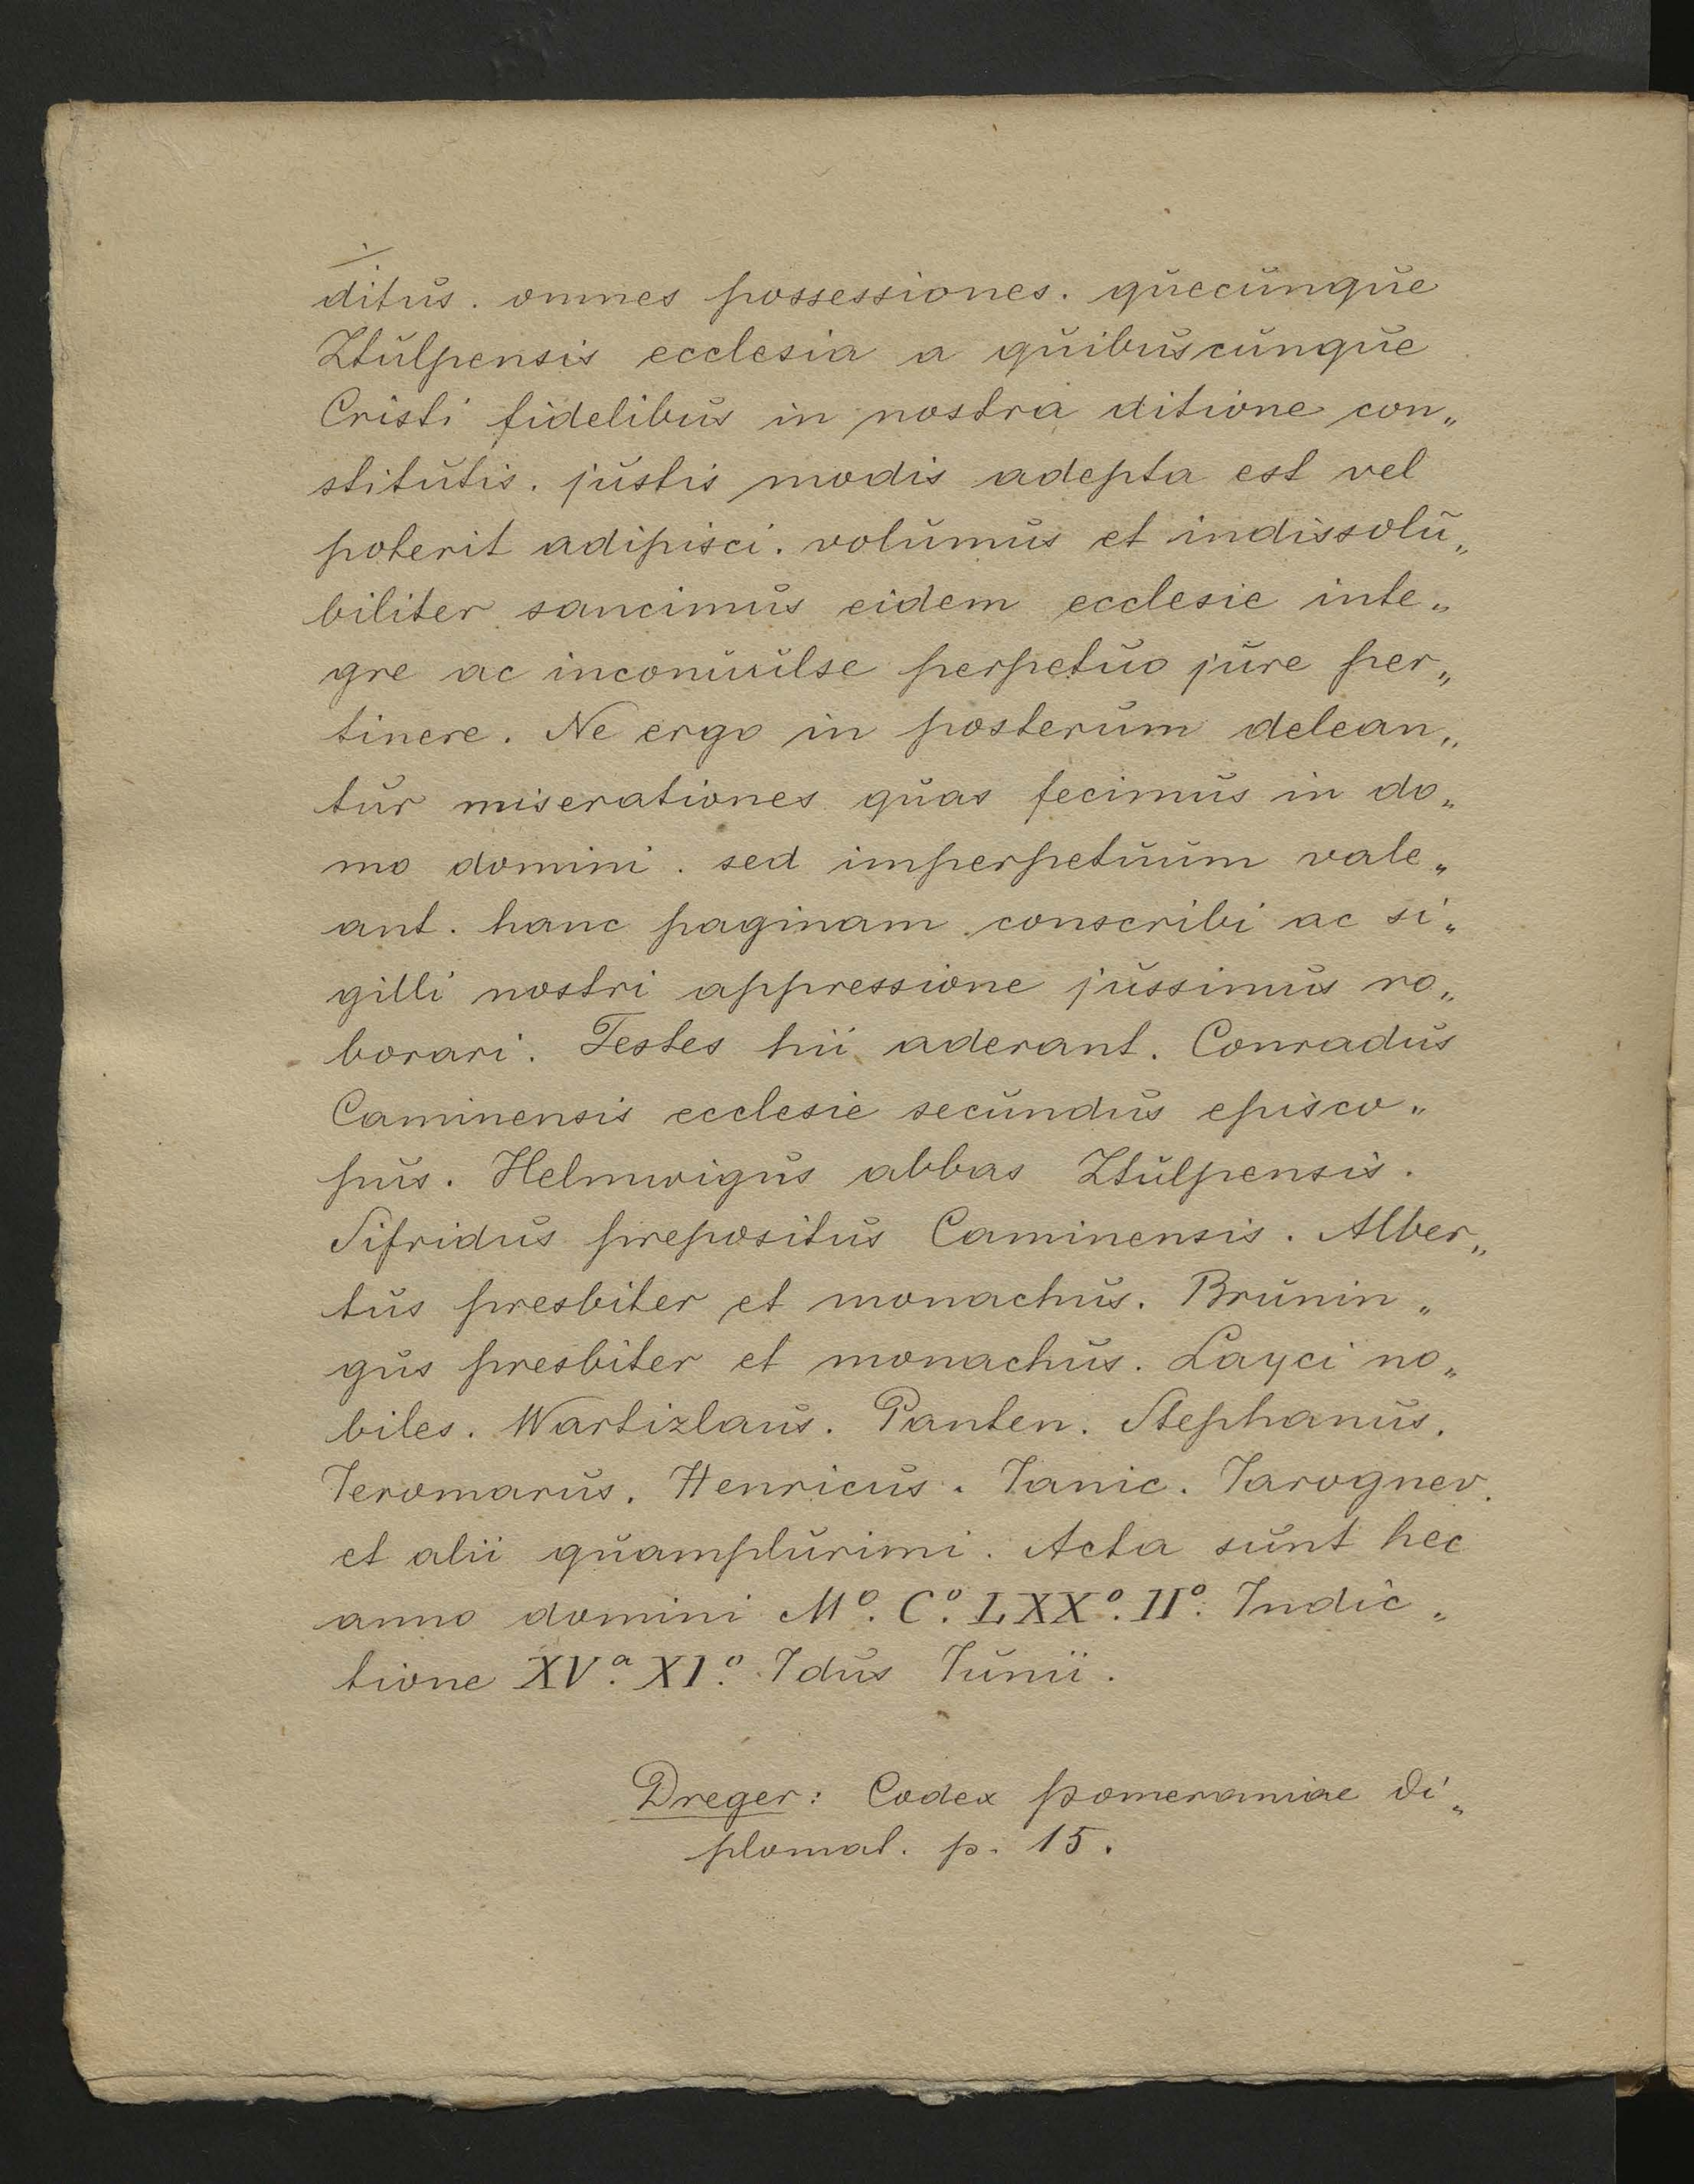 ditus. omnes possessiones. quecunque
Ztulpensis ecclesia a quibuscunque
Cristi fidelibus in nostra ditione con„
stitutis. justis modis adepta est vel
poterit adipisci. volumus et indissolu„
biliter sancimus eidem ecclesie inte„
gre ac inconuulse perpetuo jure per„
tinere. Ne ergo in posterum delean„
tur miserationes quas fecimus in do„
mo domini. sed imperpetuum vale„
ant. hanc paginam conscribi ac si„
gilli nostri appressione jussimus ro„
borari. Testes hii aderant. Conradus
Caminensis ecclesie secundus episco„
pus. Helmwigus abbas Ztulpensis.
Sifridus prepositus Caminensis. Alber„
tus presbiter et monachus. Brunin„
gus presbiter et monachus. Layci no„
biles. Wartizlaus. Panten. Stephanus.
Jeromarus. Henricus. Janic. Jarognev.
et alii quamplurimi. Acta sunt hec
anno domini Mº. Cº. LXXº. IIº. Indic„
tione XVª. XIº. Idus Junii.
Dreger: Codex Pomeraniae di„
plomat. p. 15.